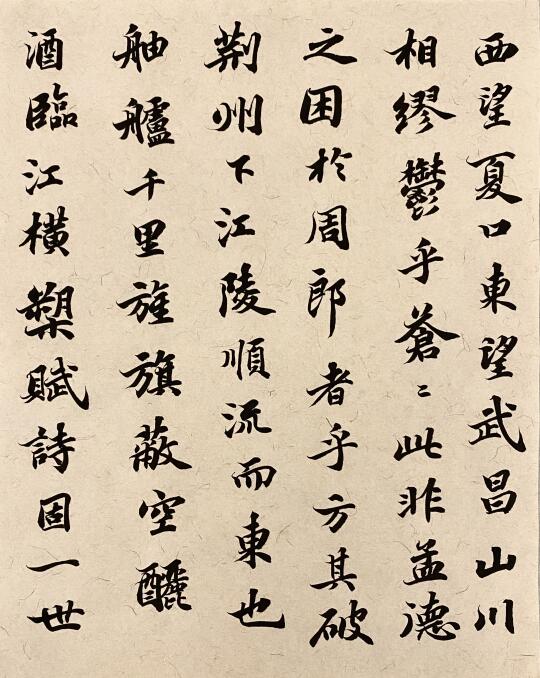 西望夏口東望武昌山川
相繆鬱乎蒼〻此非孟德
之困於周郎者乎方其破
荆州下江陵順流而東也
舳艫千里旌旗蔽空釃
酒臨江橫槊賦詩固一世